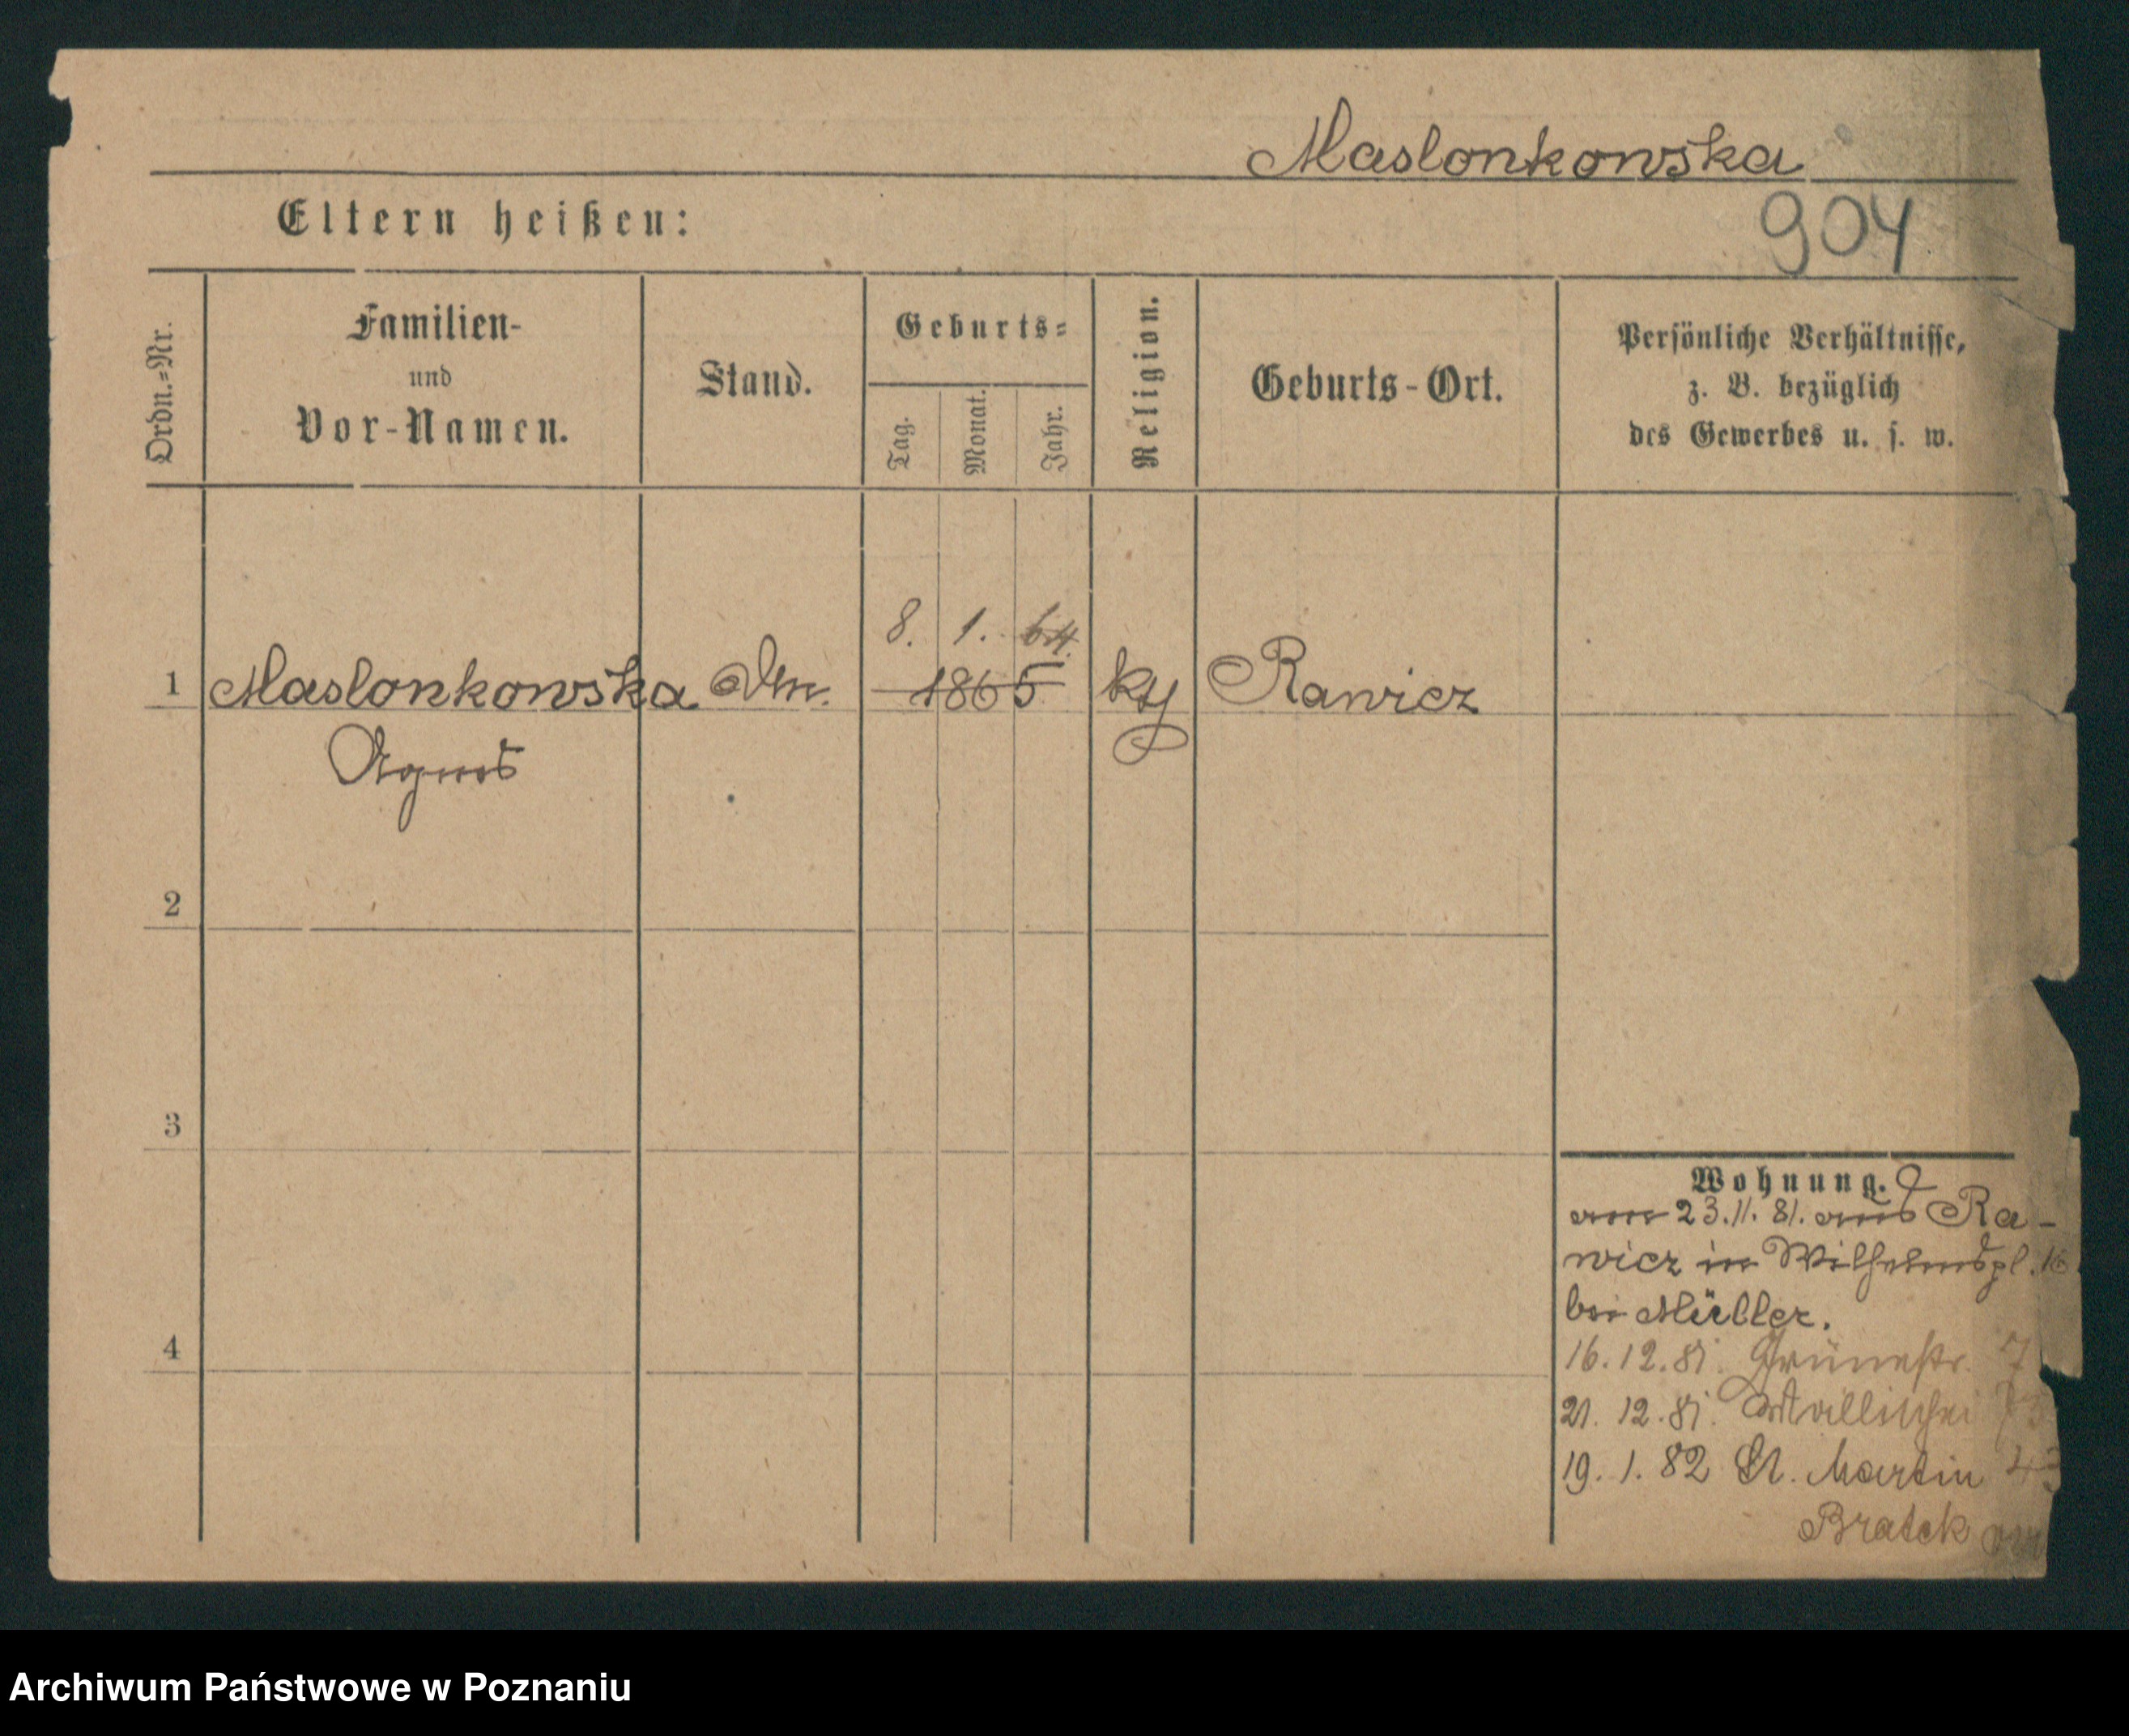 Maslonkowska
904
Eltern heißen:
Ordn.=Nr.
Familien-
und
Vor-Namen.
Stand.
Geburts=
Tag.
Monat.
Jahr.
Religion.
Geburts-Ort.
Persönliche Verhältnisse,
z. B. bezüglich
des Gewerbes u. s. w.
8. 1. 64.
1 Maslonkowska 1865 Rawicz
Agnes
2
3
4
Wohnung.
am 23.11.81. aus Ra-
wicz in Wilhelmspl. 16
bei Müller.
16.12.81. Grünestr. 7
21.12.81.
19.1.82 St. Martin
Bratek
Archiwum Państwowe w Poznaniu